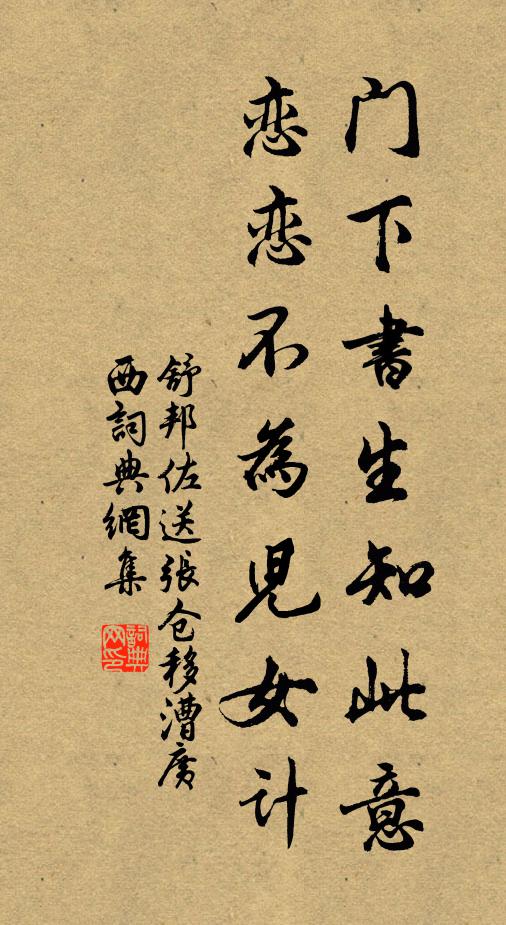 门下書生知此意
恋恋不為児女计
舒邦佐送張仓移漕廣
西詞典網集
詞典网印